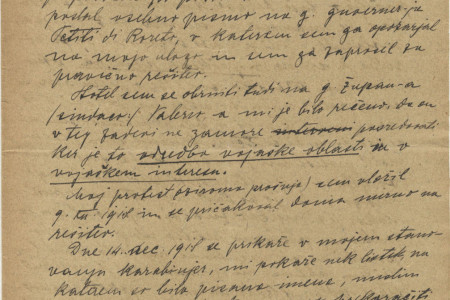 podal osebno pismo na g. guvernerja
Petitti di Roreto, v katerem sem ga opozarjal
na mojo vlogo in sem ga zaprosil za
pravično rešitev.
Hotel sem se obrniti tudi na g. župan-a
(sindaco) Valerio a mi je bilo rečeno, da on
v tej zadevi ne zamore posredovati
ker je to odredba vojaške oblasti in v
vojaškem interesu.
Moj protest oziroma prošnjo sem vložil
9. XII. 1918 in se pričakoval doma mirno na
rešitev.
Dne 14. dec. 1918 se prikaže v mojem stano-
vanju karabinjer, mi pokaže nek listek, na
katerem so bila pisana imena, mislim